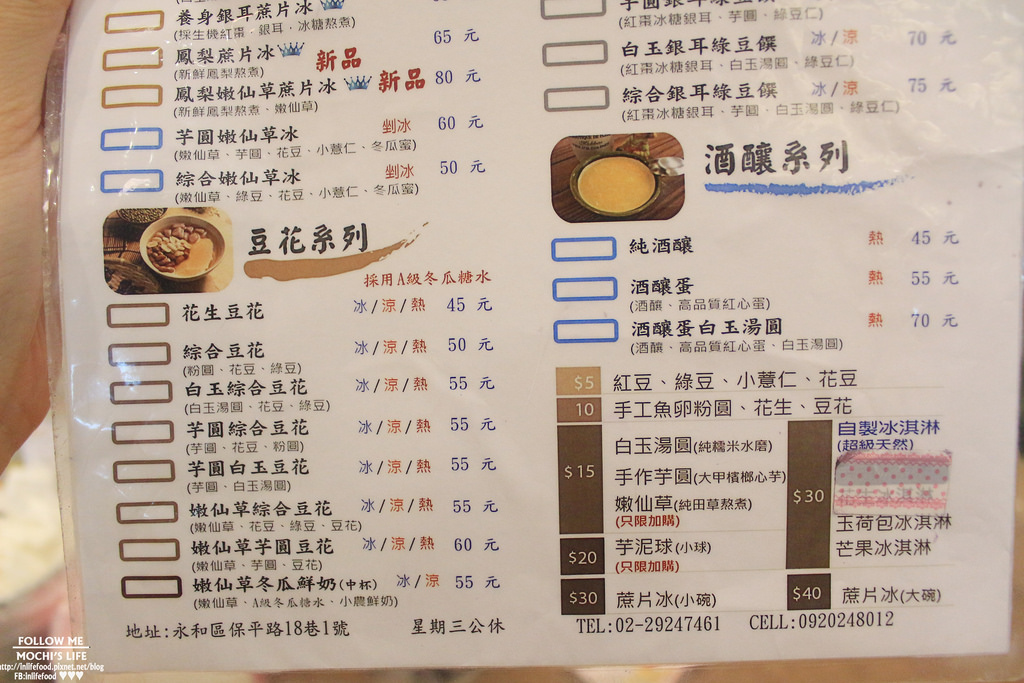 養身銀耳蔗片冰
(採生機紅棗、銀耳、冰糖熬煮)
鳳梨蔗片冰 新品 65 元
(新鮮鳳梨熬煮)
鳳梨嫩仙草蔗片冰 新品 80 元
(新鮮鳳梨熬煮、嫩仙草)
芋圓嫩仙草冰 剉冰 60 元
(嫩仙草、芋圓、花豆、小薏仁、冬瓜蜜)
綜合嫩仙草冰 剉冰 50 元
(嫩仙草、綠豆、花豆、小薏仁、冬瓜蜜)
豆花系列
採用A級冬瓜糖水
花生豆花 冰/涼/熱 45 元
綜合豆花 冰/涼/熱 50 元
(粉圓、花豆、綠豆)
白玉綜合豆花 冰/涼/熱 55 元
(白玉湯圓、花豆、綠豆)
芋圓綜合豆花 冰/涼/熱 55 元
(芋圓、花豆、粉圓)
芋圓白玉豆花 冰/涼/熱 55 元
(芋圓、白玉湯圓)
嫩仙草綜合豆花 冰/涼/熱 55 元
(嫩仙草、花豆、綠豆、豆花)
嫩仙草芋圓豆花 冰/涼/熱 60 元
(嫩仙草、芋圓、豆花)
嫩仙草冬瓜鮮奶(中杯) 冰/涼 55 元
(嫩仙草、A級冬瓜糖水、小農鮮奶)
地址:永和區保平路18巷1號 星期三公休
芋圓銀耳綠豆饌
(紅棗冰糖銀耳、芋圓、綠豆仁)
白玉銀耳綠豆饌 冰/涼 70 元
(紅棗冰糖銀耳、白玉湯圓、綠豆仁)
綜合銀耳綠豆饌 冰/涼 75 元
(紅棗冰糖銀耳、芋圓、白玉湯圓、綠豆仁)
酒釀系列
純酒釀 熱 45 元
酒釀蛋 熱 55 元
(酒釀、高品質紅心蛋)
酒釀蛋白玉湯圓 熱 70 元
(酒釀、高品質紅心蛋、白玉湯圓)
$5 紅豆、綠豆、小薏仁、花豆
10 手工魚卵粉圓、花生、豆花
$15 白玉湯圓(純糯米水磨)
手作芋圓(大甲檳榔心芋)
嫩仙草(純田草熬煮)
(只限加購)
$20 芋泥球(小球)
(只限加購)
$30 蔗片冰(小碗)
$30 自製冰淇淋
(超級天然)
玉荷包冰淇淋
芒果冰淇淋
$40 蔗片冰(大碗)
TEL:02-29247461 CELL:0920248012
FOLLOW ME
MOCHI'S LIFE
http://inlifefood.pixnet.net/blog
FB:inlifefood ♥♥♥